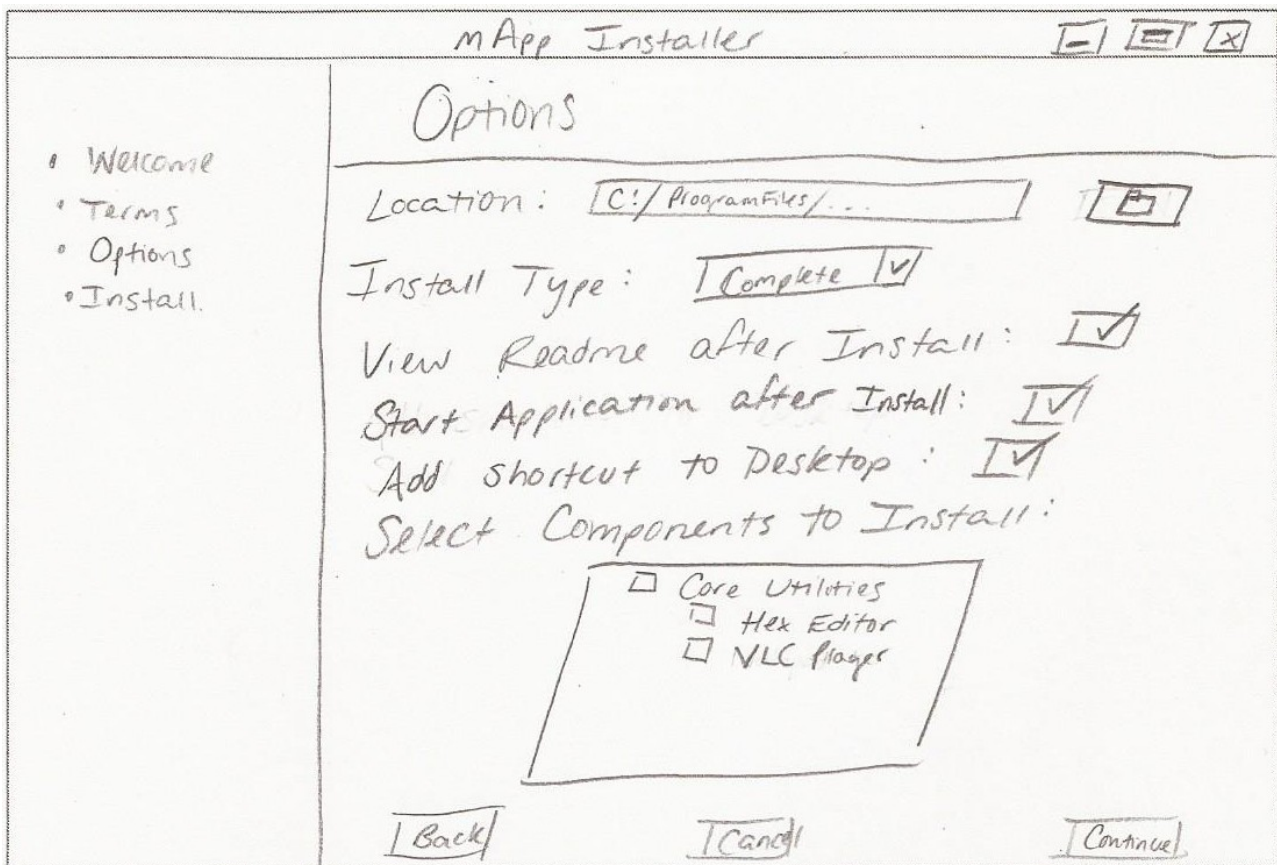 mApp Installer
Options
• Welcome
• Terms
• Options
• Install.
Location: C:/ProgramFiles/...
Install Type: Complete
View Readme after Install:
Start Application after Install:
Add Shortcut to Desktop:
Select Components to Install:
Core Utilities
Hex Editor
VLC Player
Back Cancel Continue